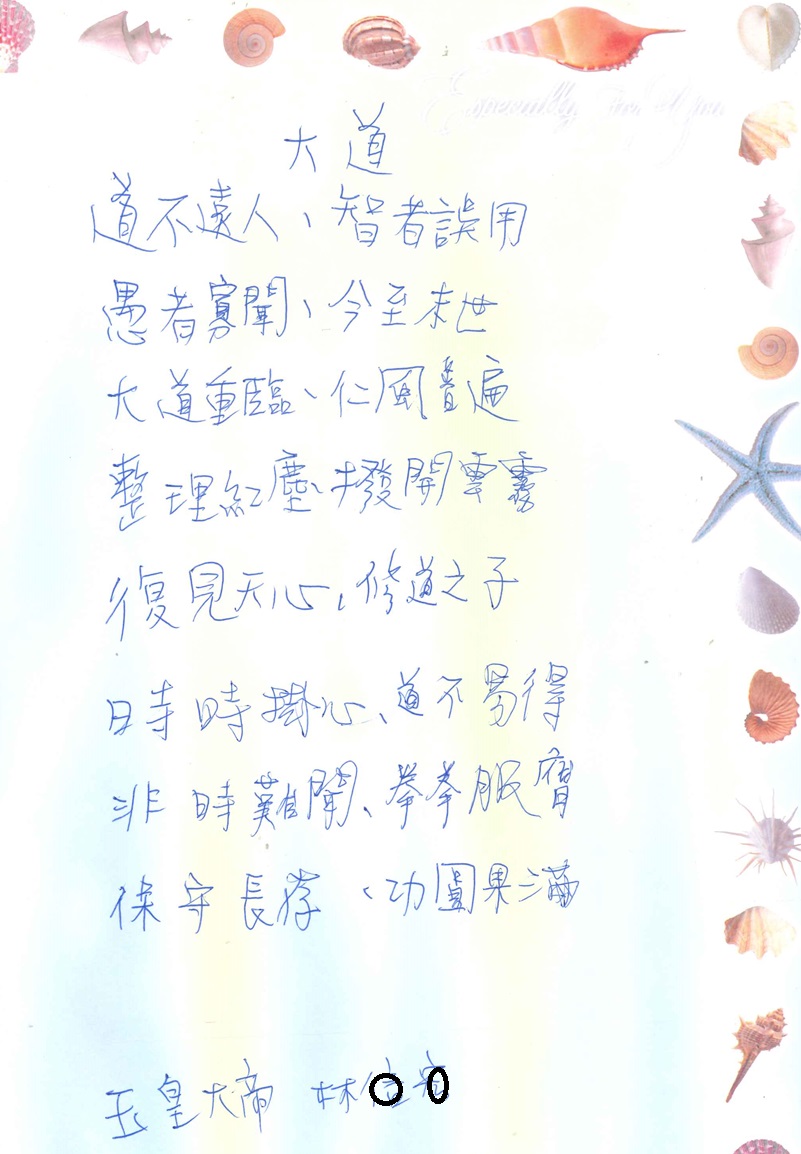 大道
道不遠人、智者誤用
愚者寡聞、今至末世
大道重臨、仁風普遍
整理紅塵、撥開雲霧
復見天心、修道之子
時時掛心、道不易得
非時難聞、拳拳服膺
保守長存、功圓果滿
玉皇大帝 林